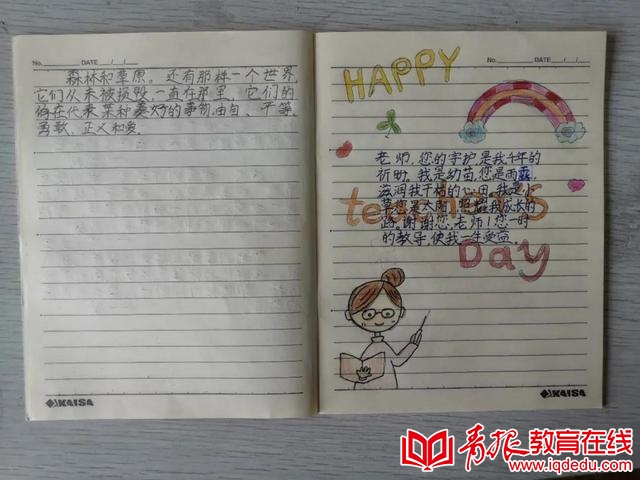 No. DATE / /
森林和草原。还有那样一个世界,
它们从未被损毁,一直在那里,它们的
存在代表某种美好的事物,由自、平等、
勇敢、正义和爱。
KAISA
No. DATE / /
HAPPY
老师,您的守护是我千年的
祈盼。我是幼苗,您是雨露,
滋润我干枯的心田,我是小
草,您是太阳,照耀我成长的
路。谢谢您,老师!您一时
的教导,使我一生受益。
teacher's
Day
KAISA
青报教育在线
www.iqdedu.com